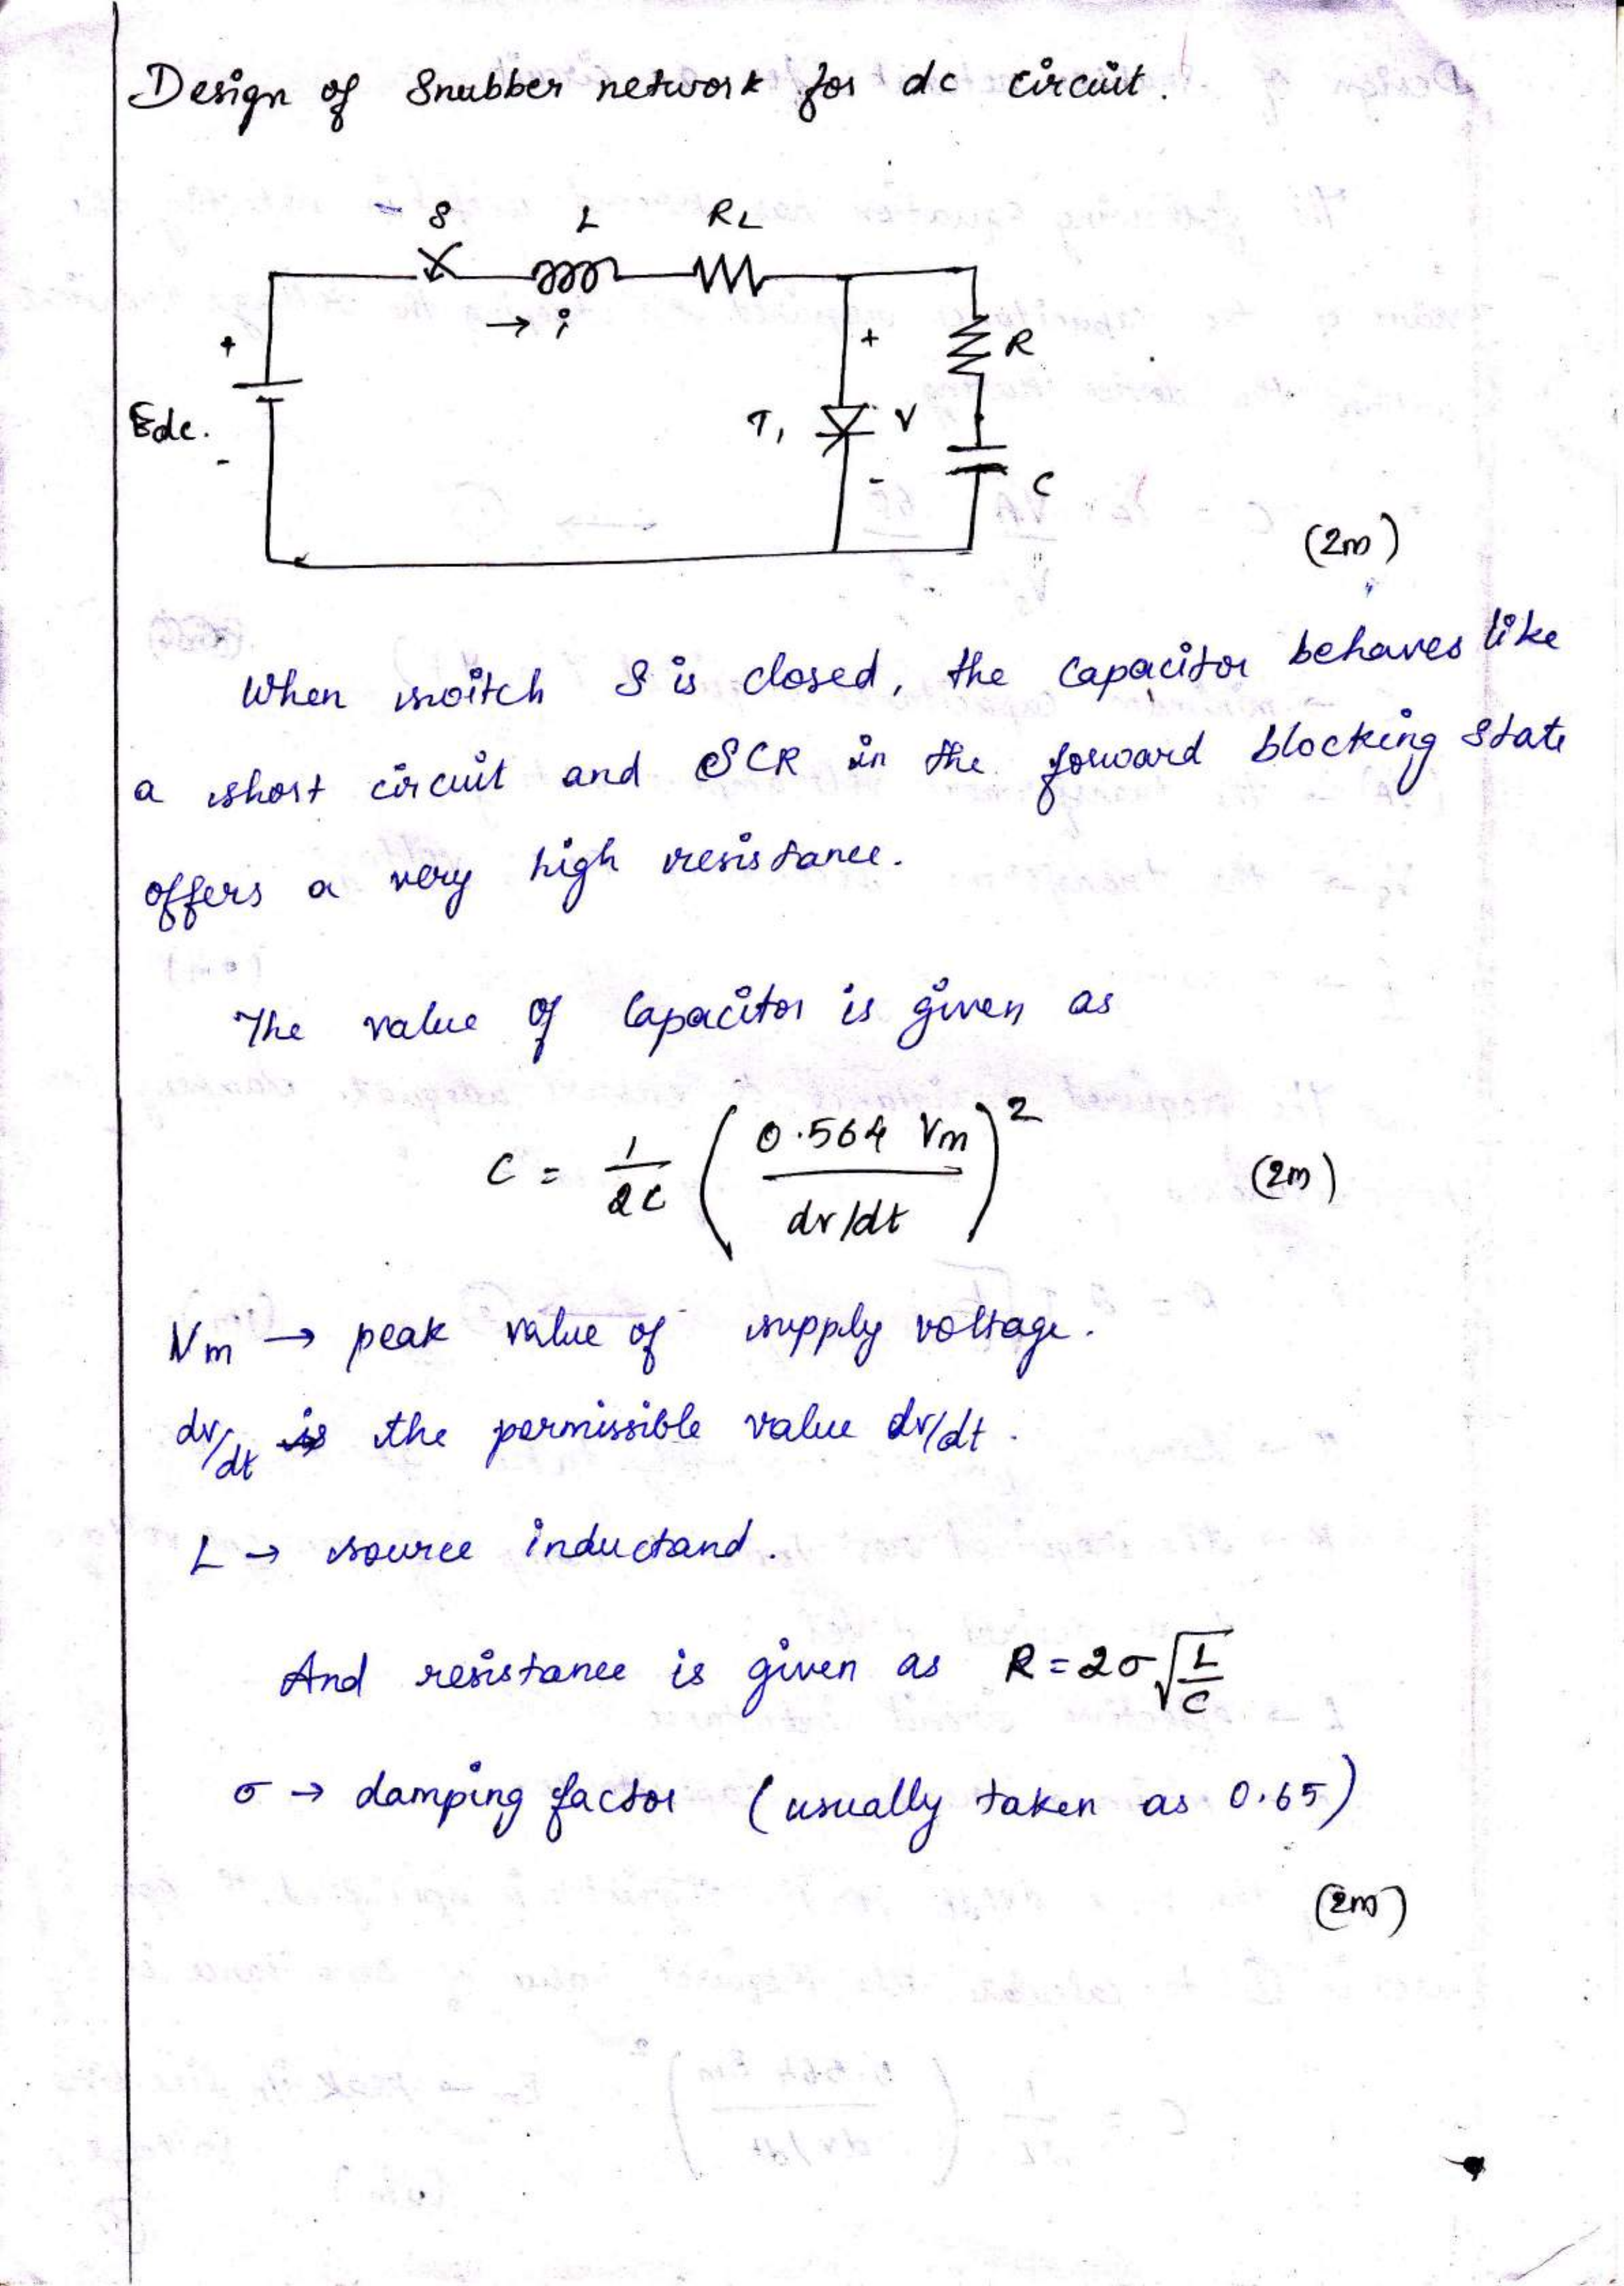 Design of Snubber network for dc circuit.
S L RL
→ i
+ + R
Edc. T1 V
- - C
(2m)
When switch S is closed, the capacitor behaves like
a short circuit and SCR in the forward blocking state
offers a very high resistance.
The value of capacitor is given as
C = 1/2L (0.564 Vm / dv/dt)² (2m)
Vm → peak value of supply voltage.
dv/dt is the permissible value dv/dt.
L → source inductand.
And resistance is given as R = 2σ√L/C
σ → damping factor (usually taken as 0.65)
(2m)